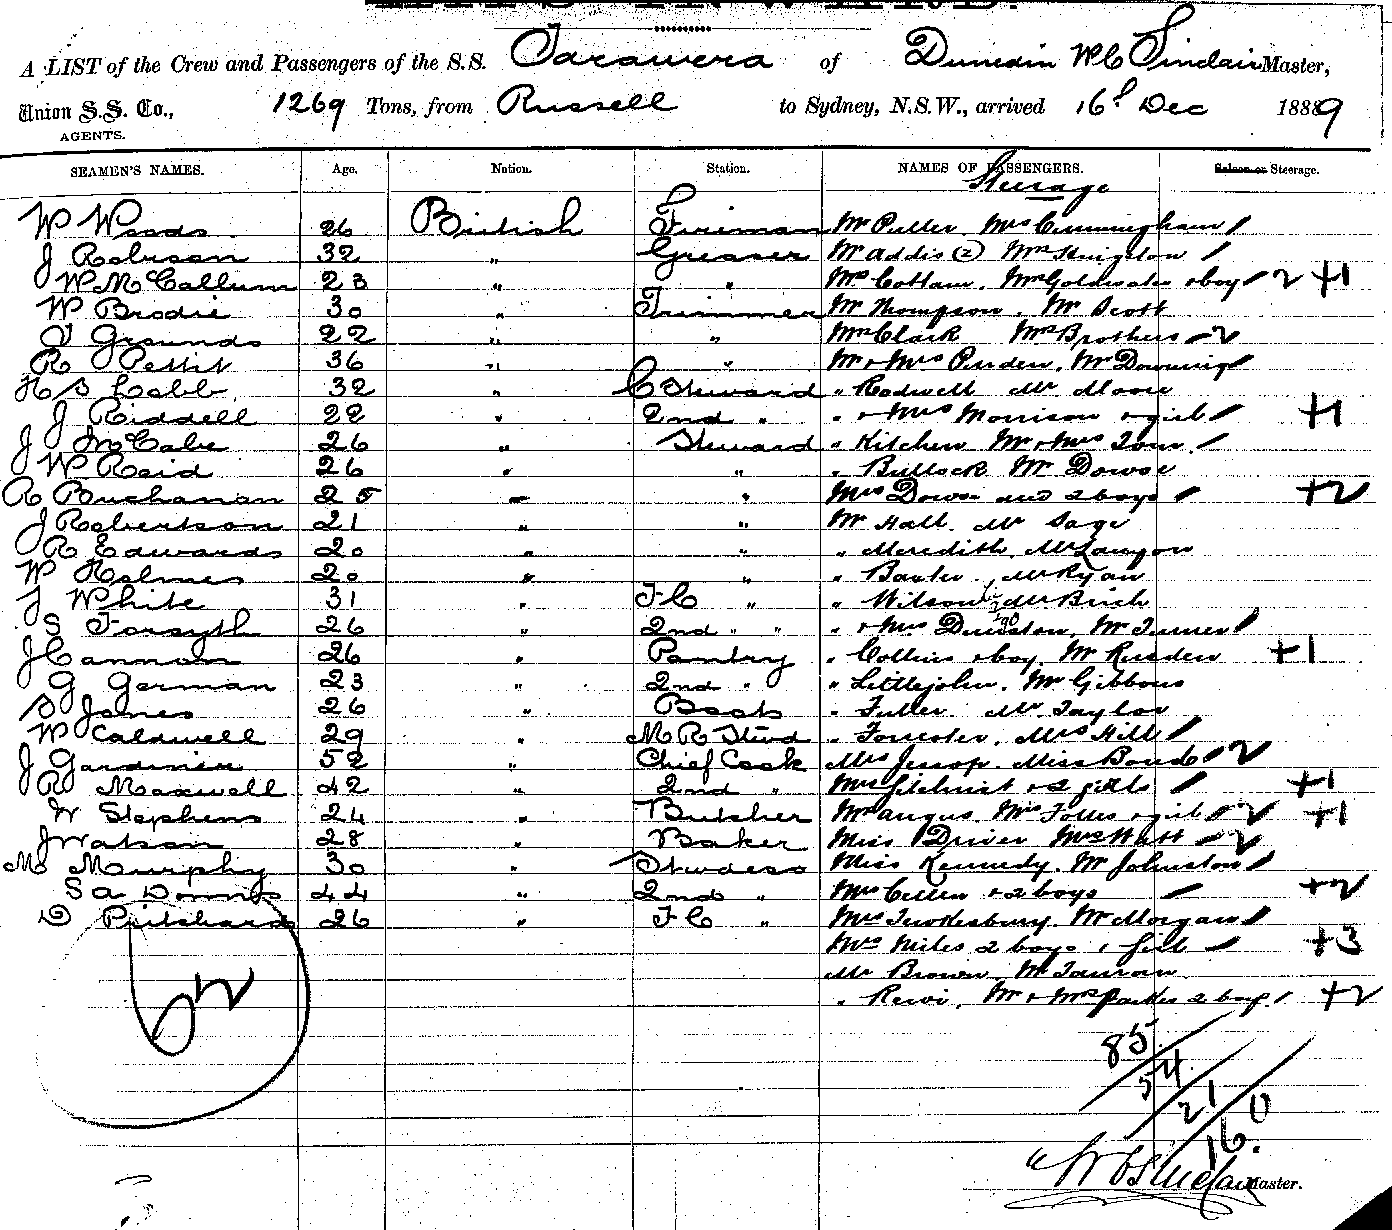 A LIST of the Crew and Passengers of the S.S. Tarawera of Dunedin W C Sinclair Master,
Union S.S. Co., 1269 Tons, from Russell to Sydney, N.S.W., arrived 16th Dec 1889
AGENTS.
SEAMEN'S NAMES. Age. Nation. Station. NAMES OF PASSENGERS. Saloon or Steerage.
Steerage
W Woods 26 British Fireman Mr Puller Mrs Cunningham /
J Robson 32 " Greaser Mr Addis (2) Mrs Kingston /
W McCallum 23 " " Mrs Cottam. Mrs Goldwater + boy / 2 +1
W Brodie 30 " Trimmer Mr Thompson. Mr Scott
T Grounds 22 " " Mrs Clark Mrs Brothers - 2
R Pettit 36 " " Mr + Mrs Purden. Mr Downing /
H S Cobb 32 " C Steward " Rodwell Mr Moore
J Riddell 22 " 2nd " " + Mrs Morrison + girl / +1
J McCabe 26 " Steward " Kitchen Mr + Mrs Tom /
W Reid 26 " " " Bullock Mr Dowse
R Buchanan 25 " " Mrs Dowse and 2 boys / +2
J Robertson 21 " " Mr Hall. Mr Sage
R Edwards 20 " " " Meredith. Mr Lawson
W Holmes 20 " " " Baxter. Mr Ryan
J White 31 " F C " " Wilson Mr Birch
S Forsyth 26 " 2nd " " " + Mrs Mr Turner /
J Cannon 26 " Pantry " Collins + boy. Mr Rusden +1
G German 23 " 2nd " " Littlejohn. Mr Gibbons
S James 26 " Boots " Fuller. Mr Taylor
W Caldwell 29 " M R Stwd " Forrester. Mrs Hill /
J Gardiner 52 " Chief Cook Mrs Jessop. Miss Bond / 2
R Maxwell 42 " 2nd " Mrs Gilchrist + 2 girls / +1
W Stephens 24 " Butcher Mrs Angus. Mrs Folles + girl / 2 +1
J Watson 28 " Baker Miss Driver Mrs Watt - 2
M Murphy 30 " Stwdess Miss Kennedy. Mr Johnston /
S A Downs 44 " 2nd " Mrs Cullen + 2 boys / +2
D Pritchard 26 " F C " Mrs Tewkesbury. Mr Morgan /
Mrs Miles 2 boys 1 girl / +3
Mr Brown. Mr
" Rewi. Mr + Mrs Parkes 2 boys / +2
85
54
21 0
16.
W C Sinclair Master.